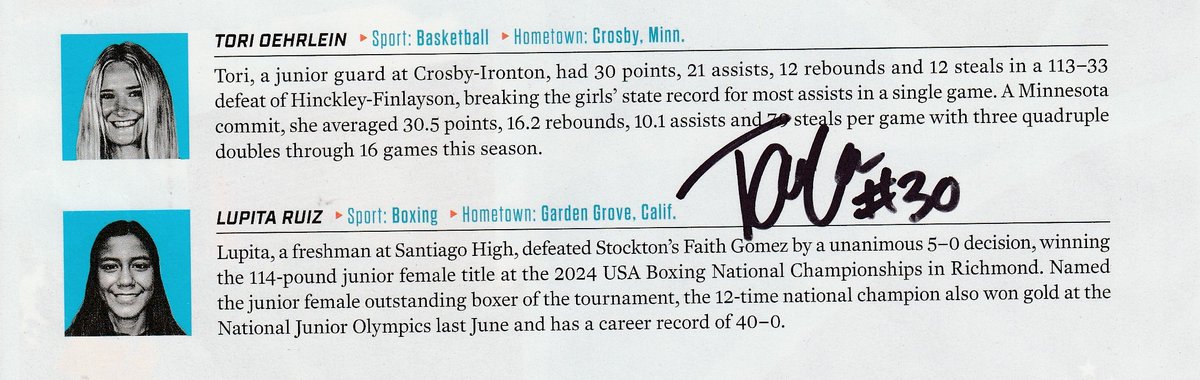 TORI OEHRLEIN ▸ Sport: Basketball ▸ Hometown: Crosby, Minn.
Tori, a junior guard at Crosby-Ironton, had 30 points, 21 assists, 12 rebounds and 12 steals in a 113–33
defeat of Hinckley-Finlayson, breaking the girls' state record for most assists in a single game. A Minnesota
commit, she averaged 30.5 points, 16.2 rebounds, 10.1 assists and steals per game with three quadruple
doubles through 16 games this season.
#30
LUPITA RUIZ ▸ Sport: Boxing ▸ Hometown: Garden Grove, Calif.
Lupita, a freshman at Santiago High, defeated Stockton's Faith Gomez by a unanimous 5–0 decision, winning
the 114-pound junior female title at the 2024 USA Boxing National Championships in Richmond. Named
the junior female outstanding boxer of the tournament, the 12-time national champion also won gold at the
National Junior Olympics last June and has a career record of 40–0.